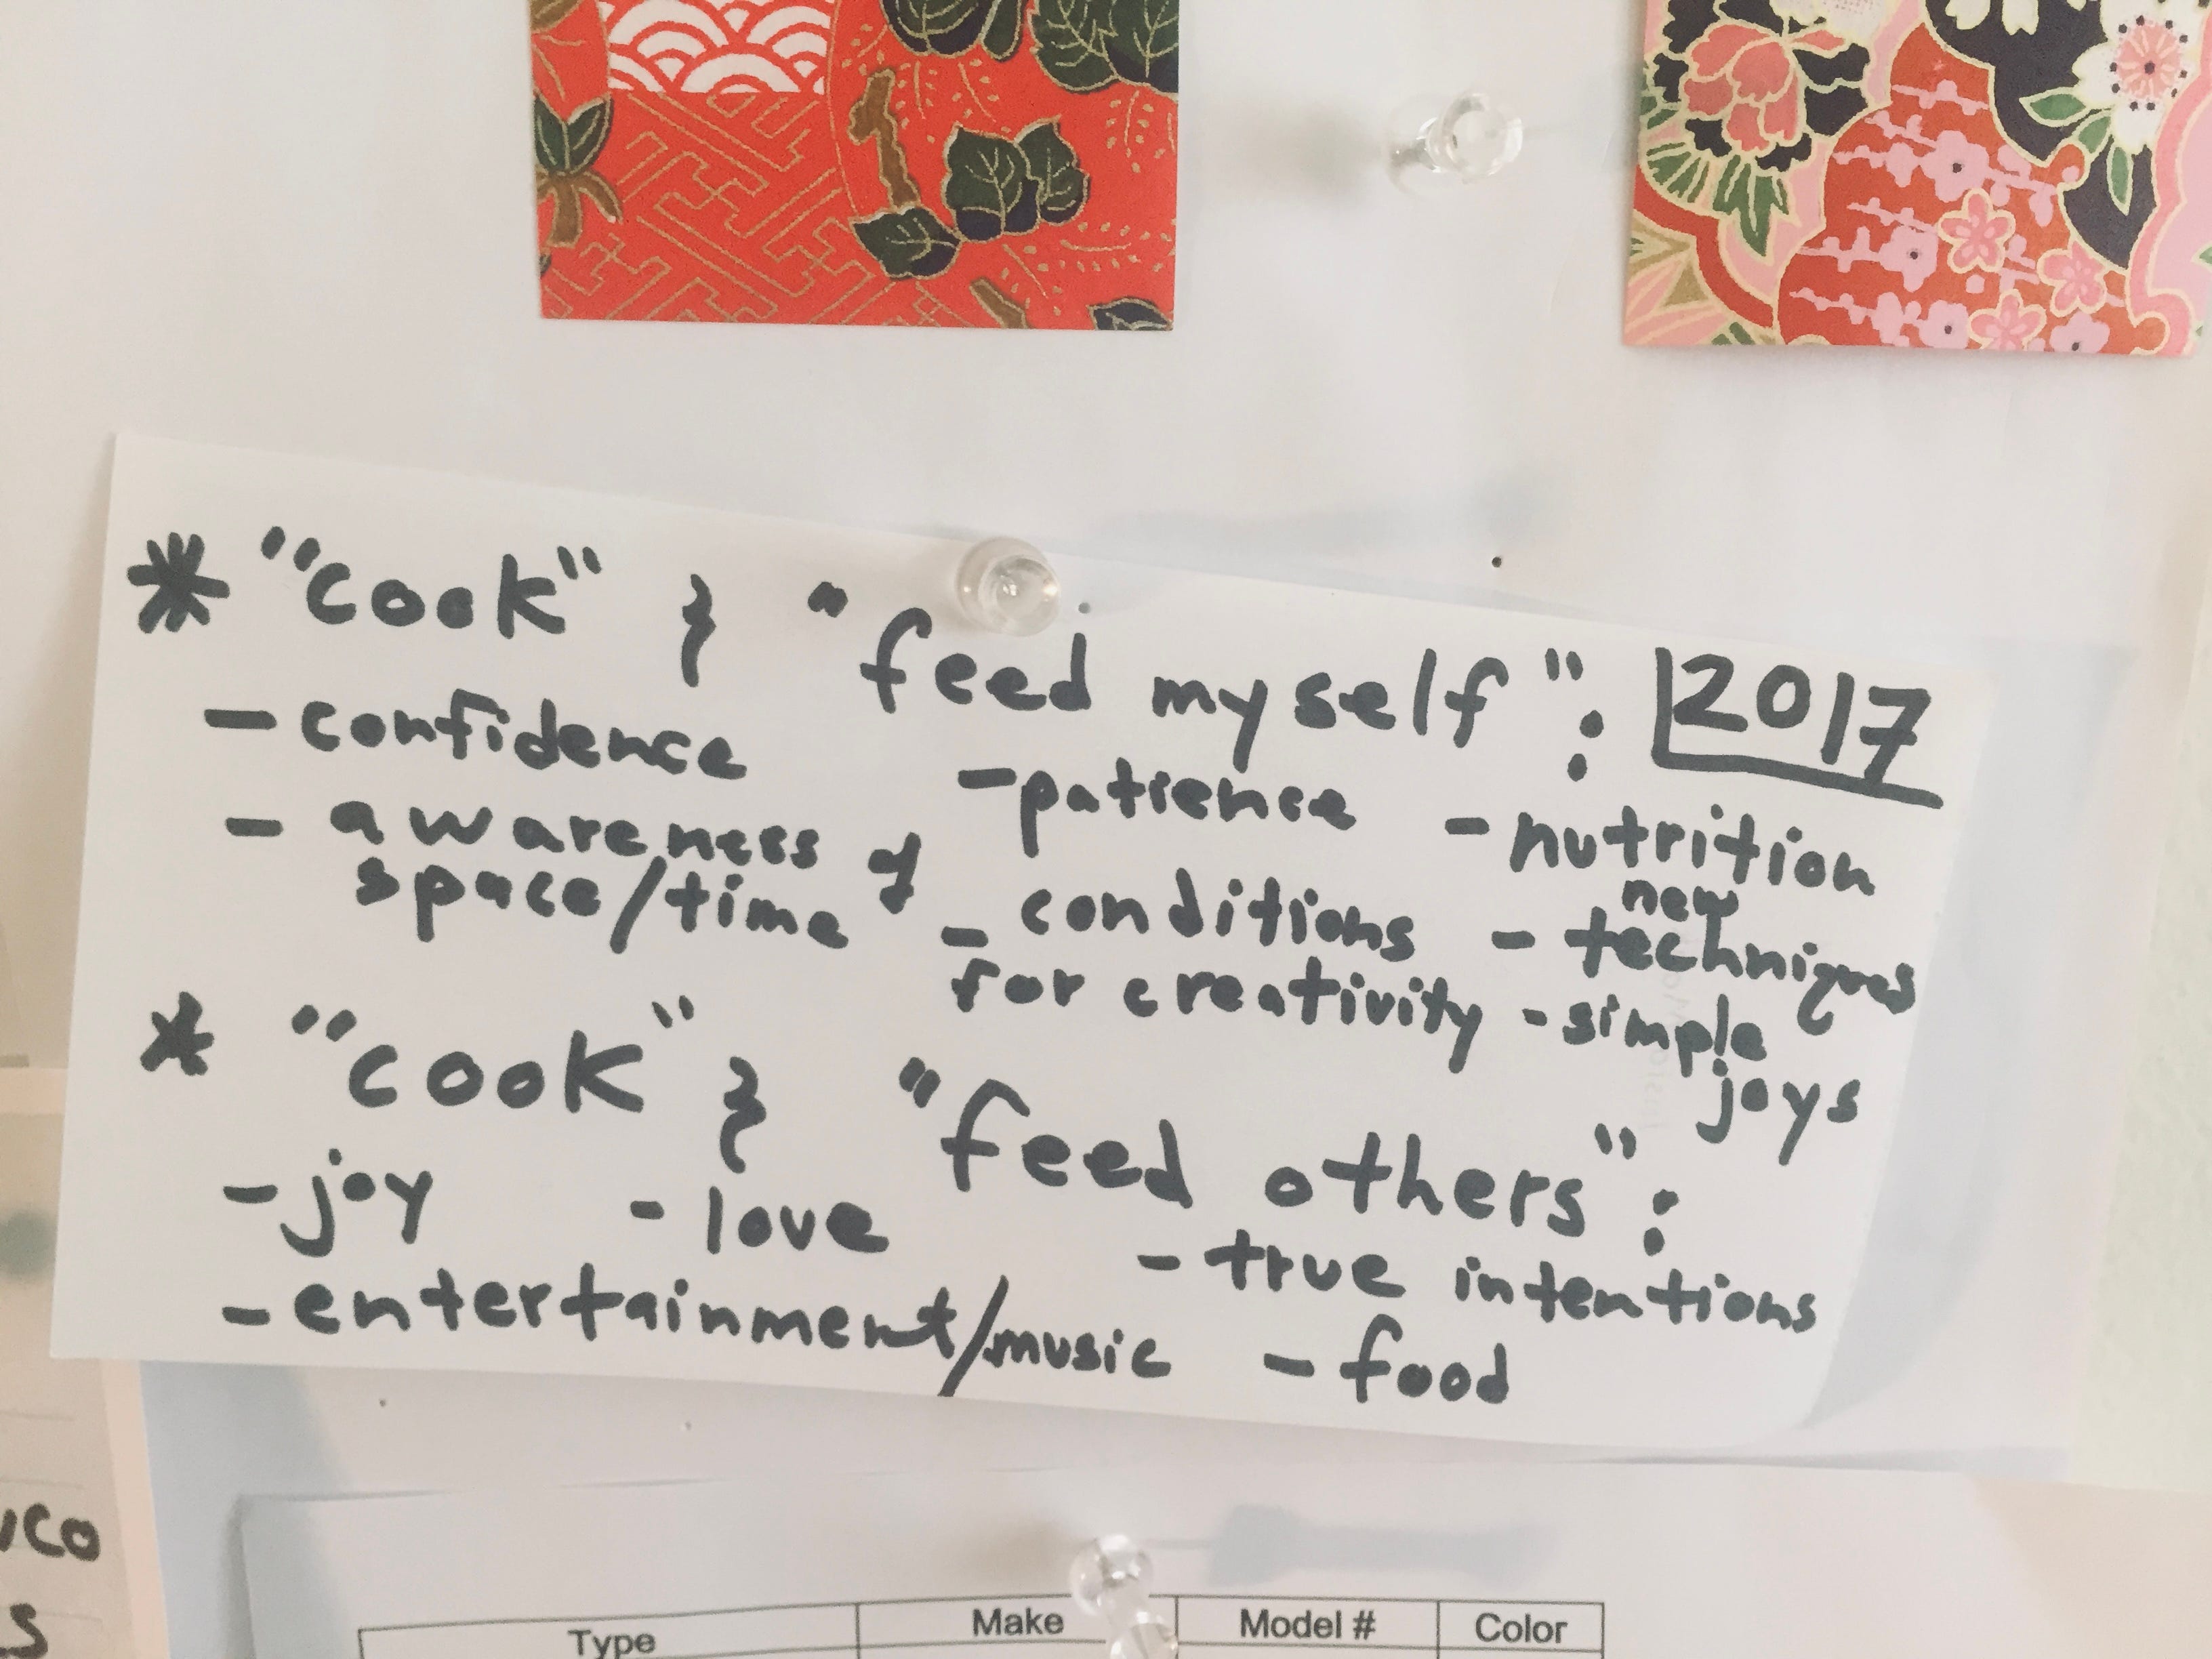 * "cook" } "feed myself": 2017
- confidence - patience - nutrition
- awareness of space/time - conditions for creativity - new techniques
- simple joys
* "cook" } "feed others":
- joy - love - true intentions
- entertainment/music - food
Type Make Model # Color